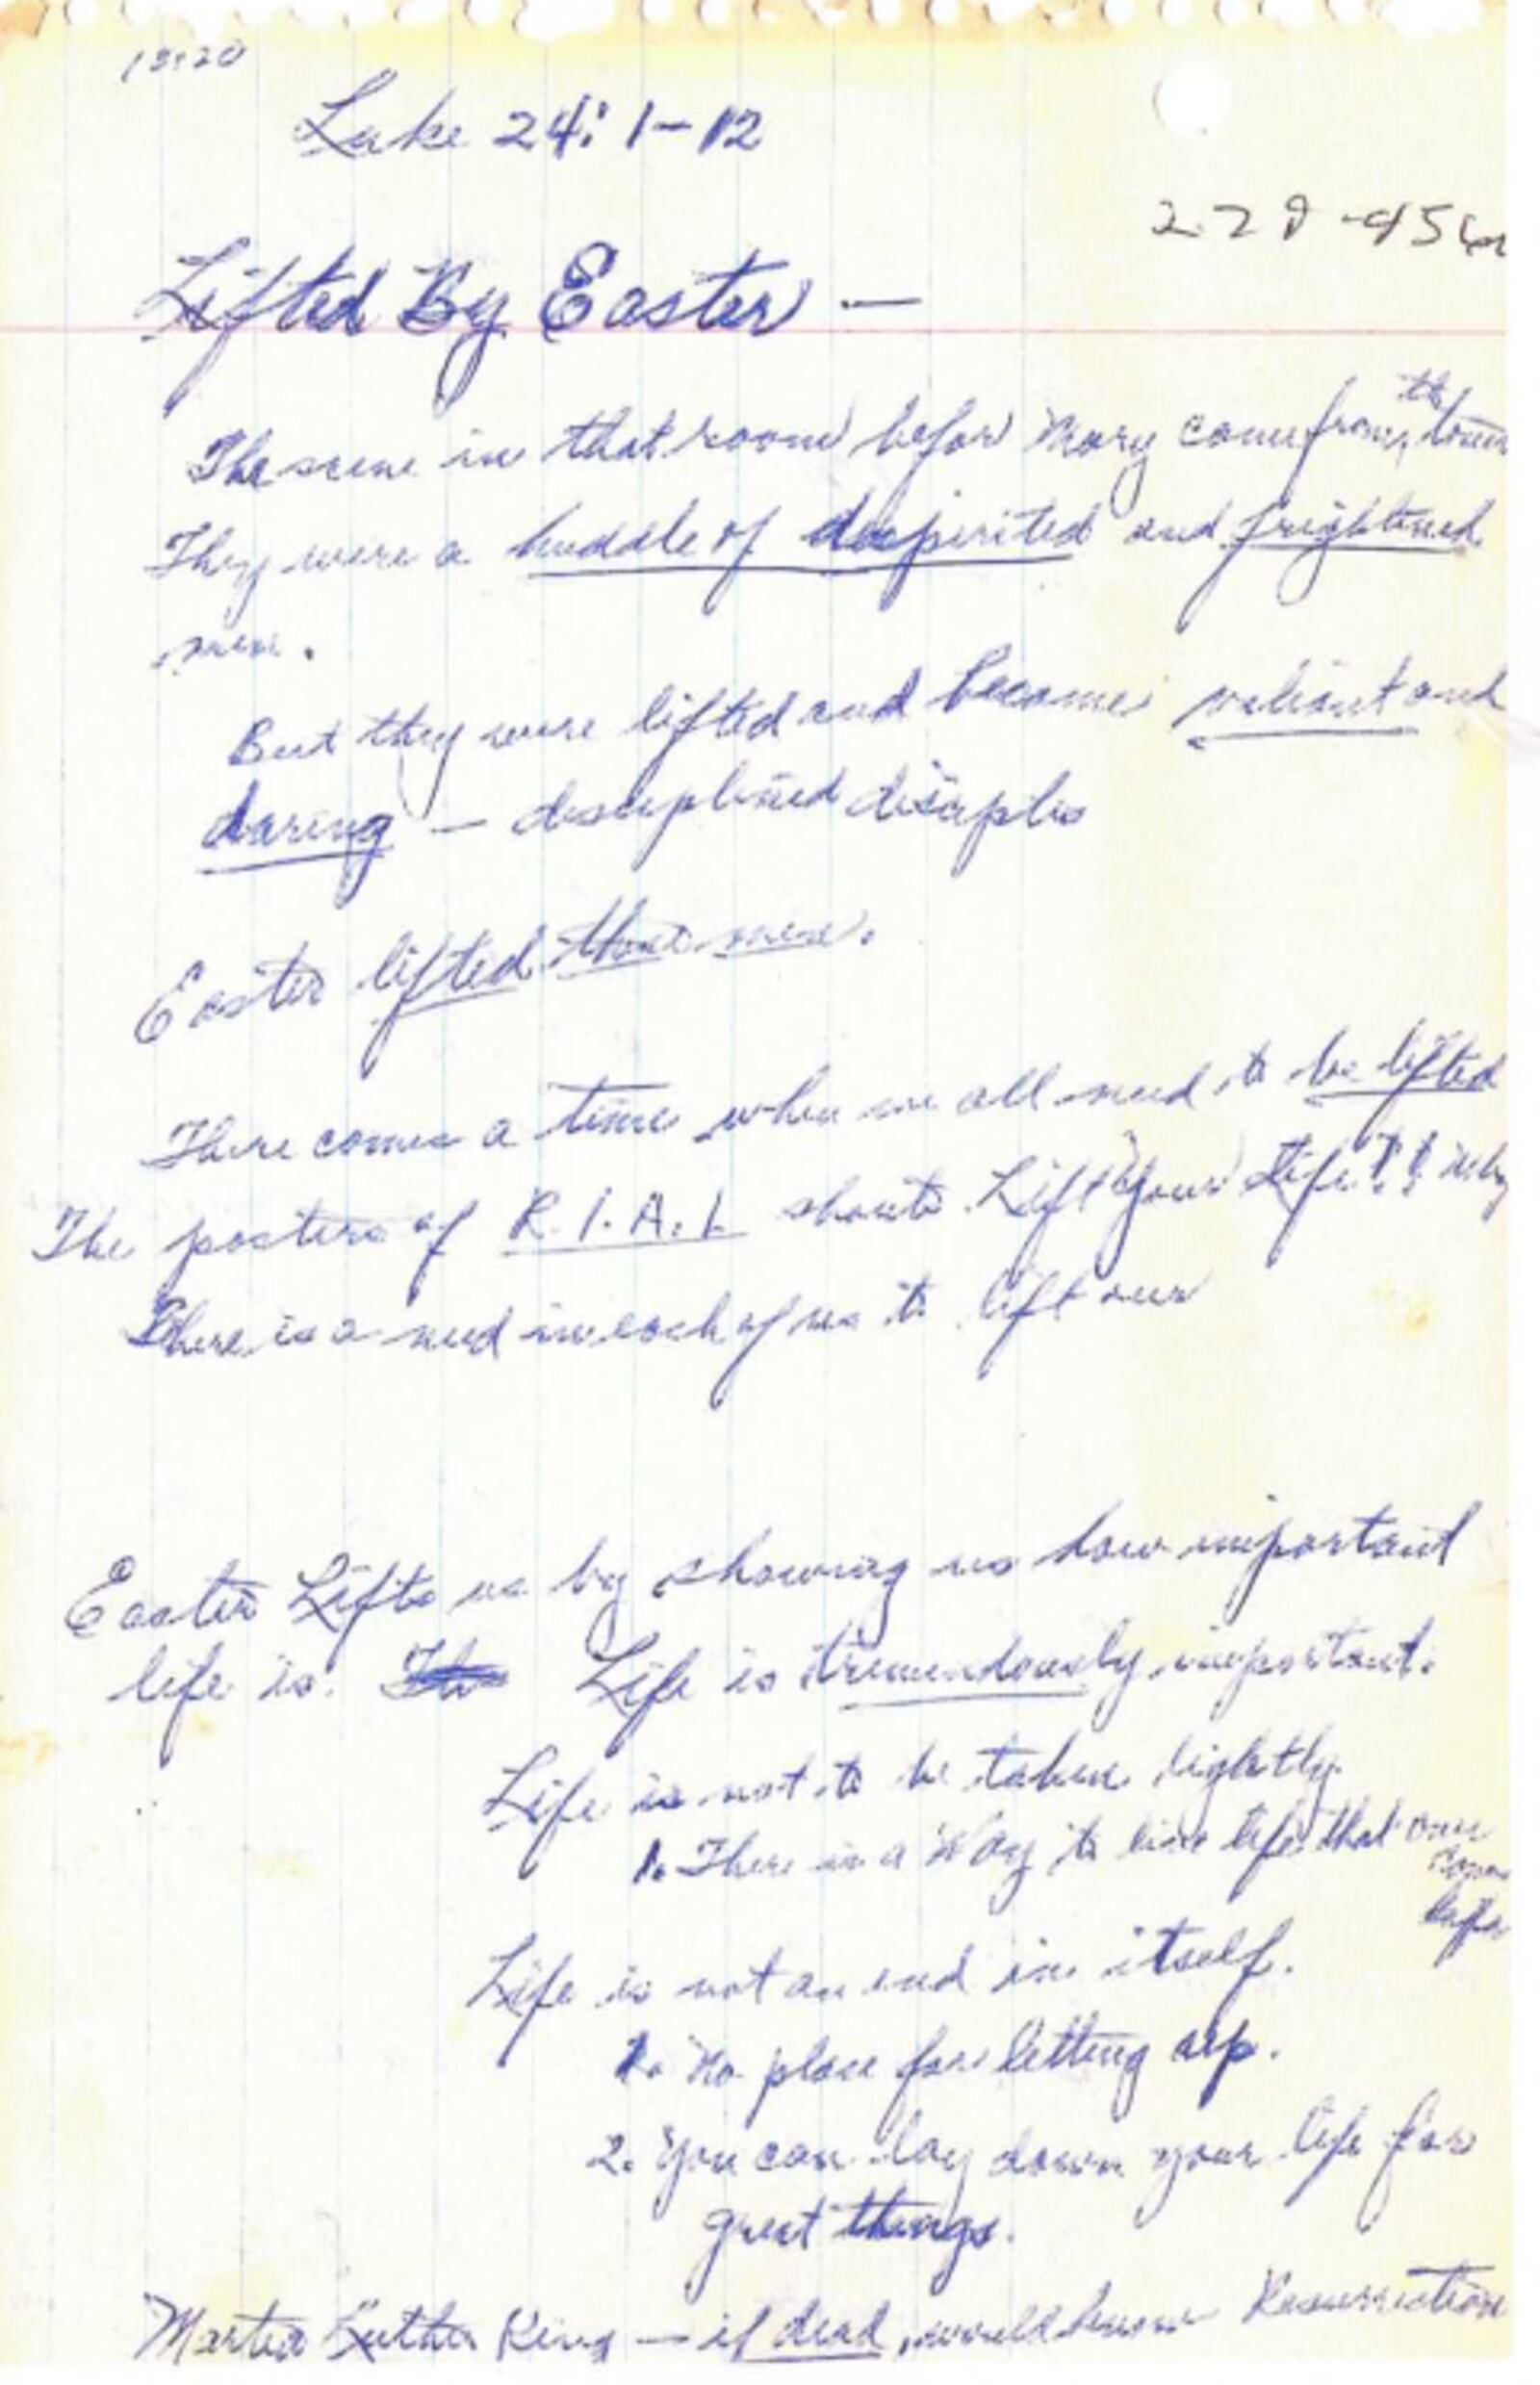 Luke 24: 1-12
Lifted By Easter —
The scene in that room befor Mary came from the
They were a huddle of dispirited and frightened
men.
But they were lifted and become valiant and
daring — disciplined disciples
Easter lifted those men.
There comes a time when we all need to be lifted
The posters of R.I.A.L shouts. Lift your Life!! Why
There is a need in each of us to lift our
Easter Lifts us by showing us how important
life is. Life is tremendously important.
Life is not to be taken lightly.
1. There is a Way to live life that
Life is not an end in itself.
1. No place for letting up.
2. You can lay down your life for
great things.
Martin Luther King — if dead, would know Resurrection